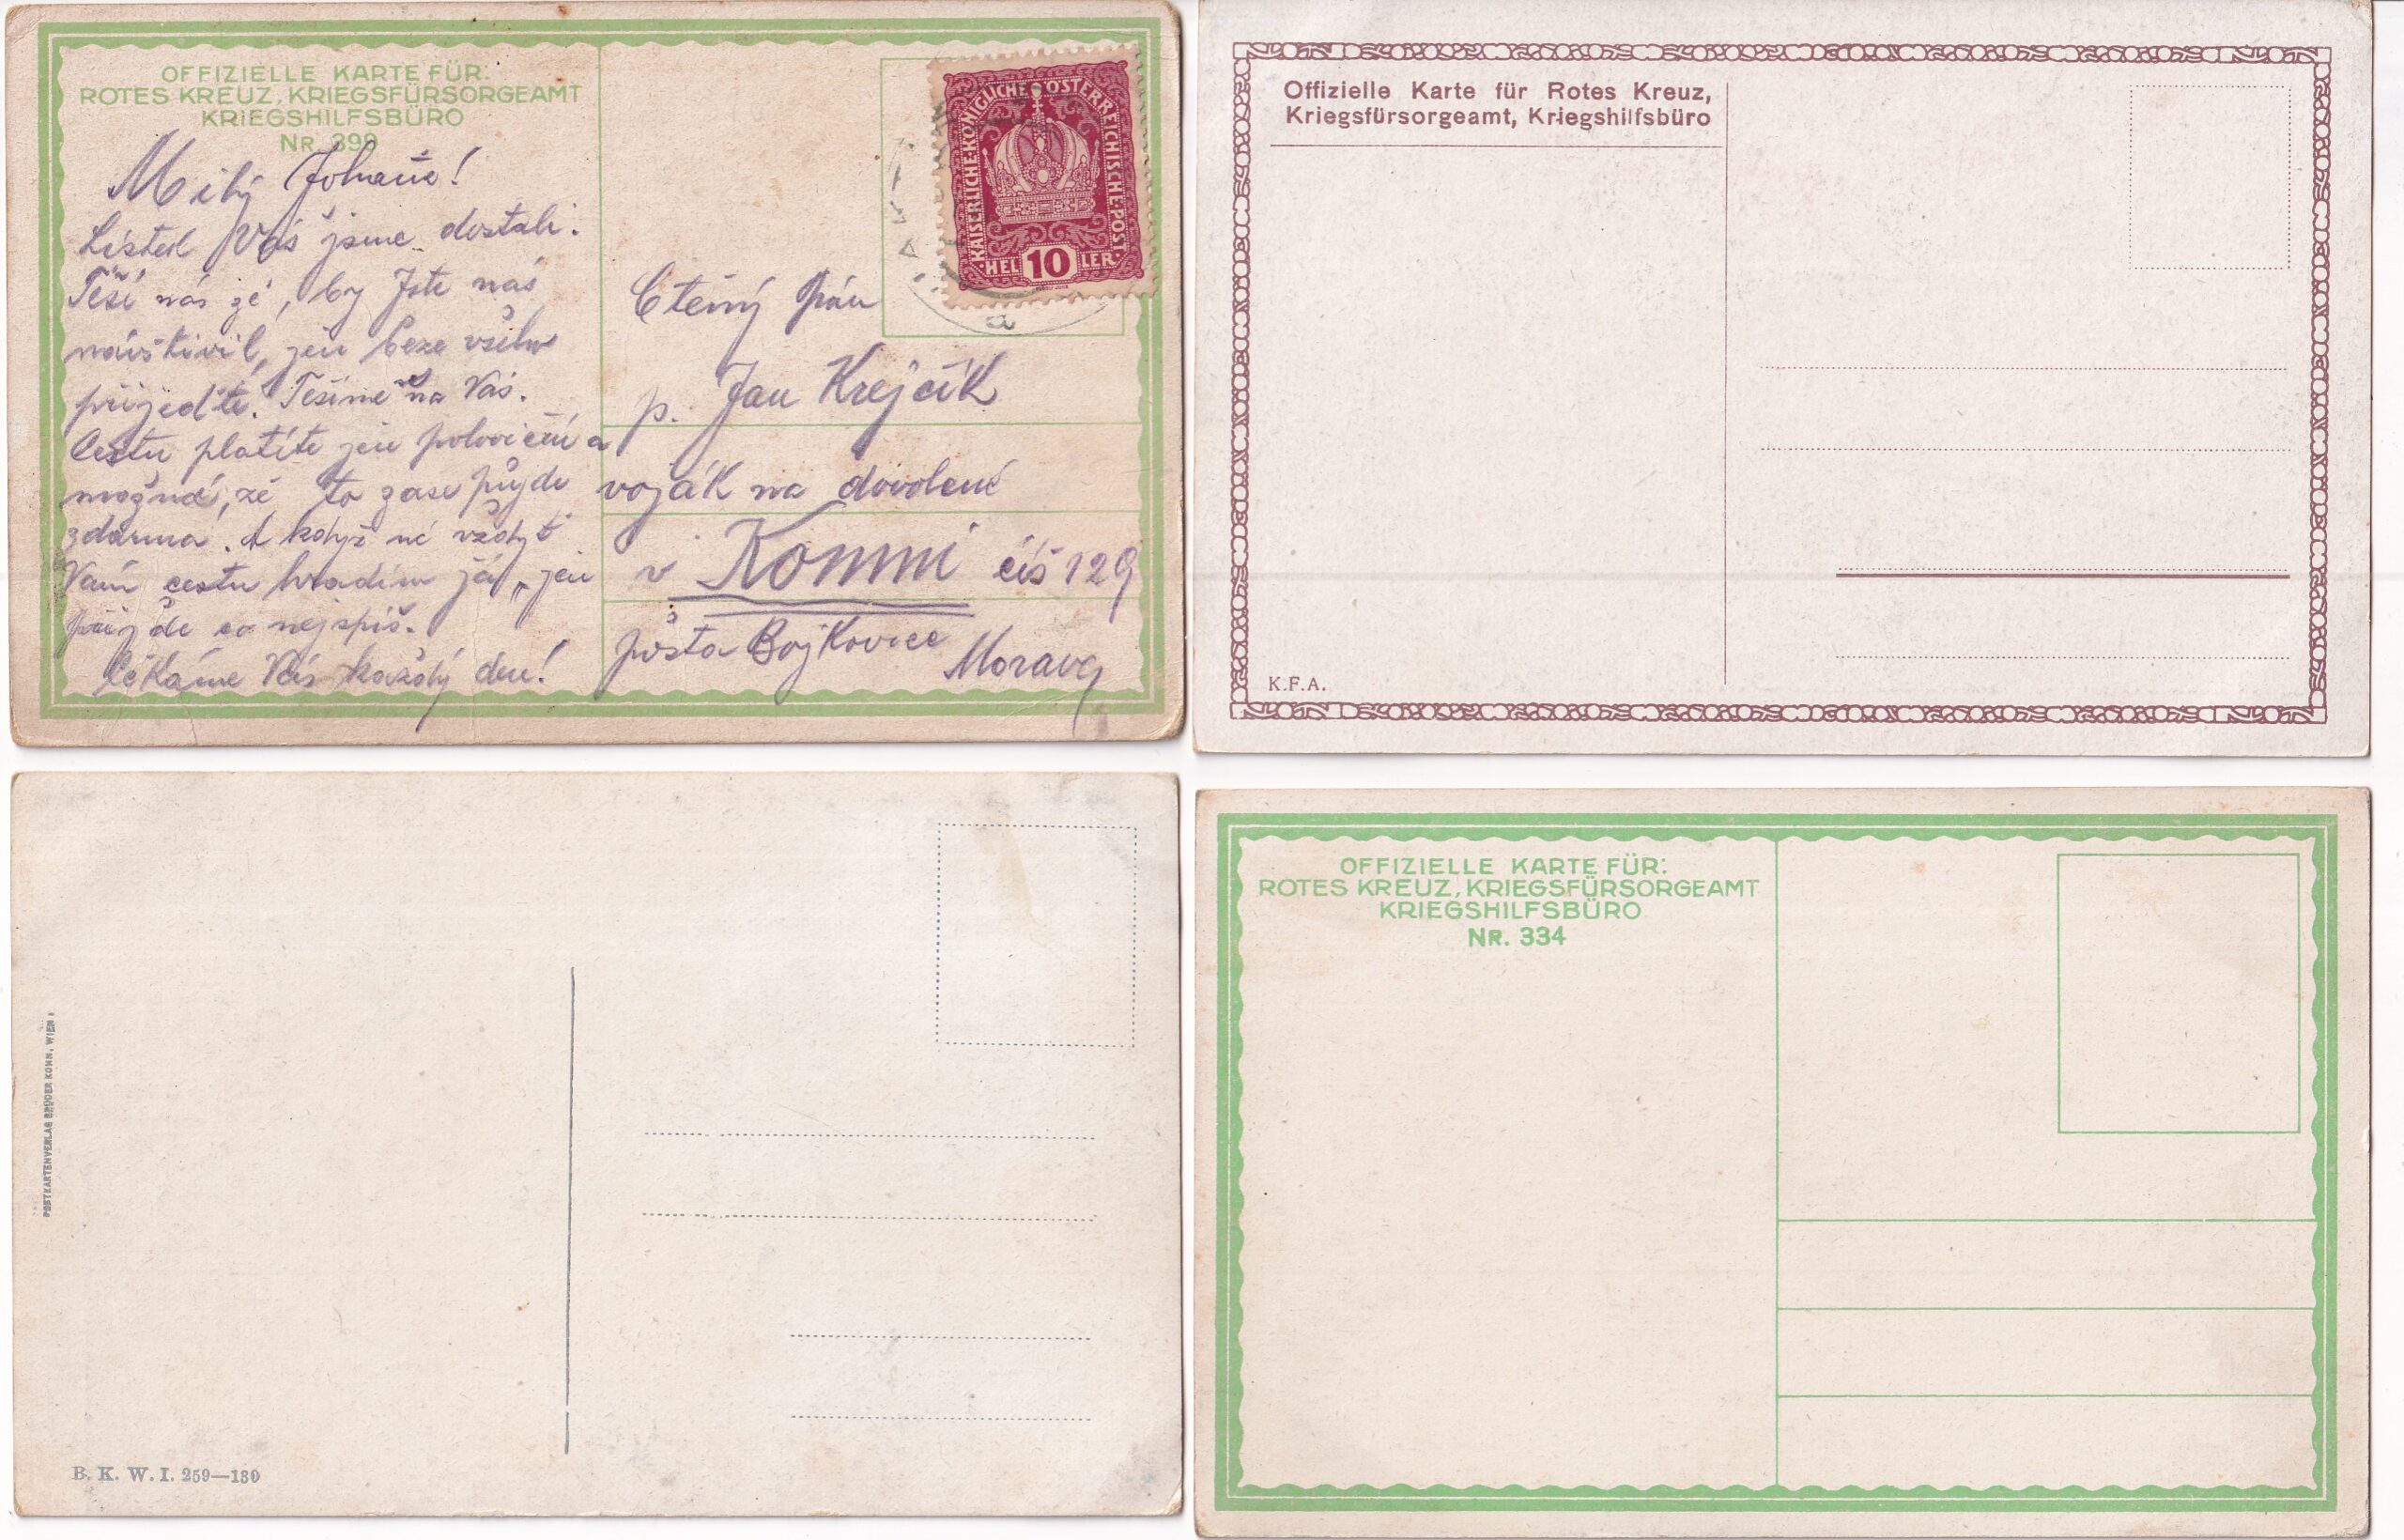 OFFIZIELLE KARTE FÜR:
ROTES KREUZ, KRIEGSFÜRSORGEAMT
KRIEGSHILFSBÜRO
NR. 399
Milý Johane!
Lístek Váš jsme dostali.
Těší nás že, by Jste nás
navštívil, jen beze všeho
přijeďte. Těšíme se na Vás.
Cestu platíte jen poloviční a
možná, že to zase půjde
zdarma. A když né vždyť
Vám cestu hradím já, jen
přijďte co nejspíš.
Čekáme Vás každý den!
KAISERLICHE·KÖNIGLICHE·ÖSTERREICHISCHE·POST
HELLER 10
Ctěný pán
p. Jan Krejčík
voják na dovolené
v Komni čís 129
pošta Bojkovice
Morava
Offizielle Karte für Rotes Kreuz,
Kriegsfürsorgeamt, Kriegshilfsbüro
K.F.A.
POSTKARTENVERLAG BRÜDER KOHN, WIEN I
B. K. W. I. 259—180
OFFIZIELLE KARTE FÜR:
ROTES KREUZ, KRIEGSFÜRSORGEAMT
KRIEGSHILFSBÜRO
NR. 334